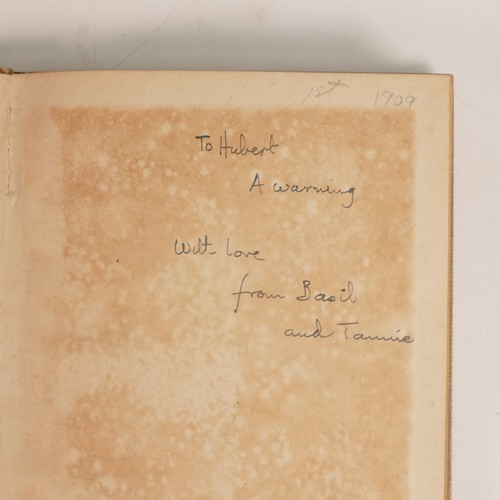 1st 1909
To Hubert
A warning
With love
from Basil
and Tannie